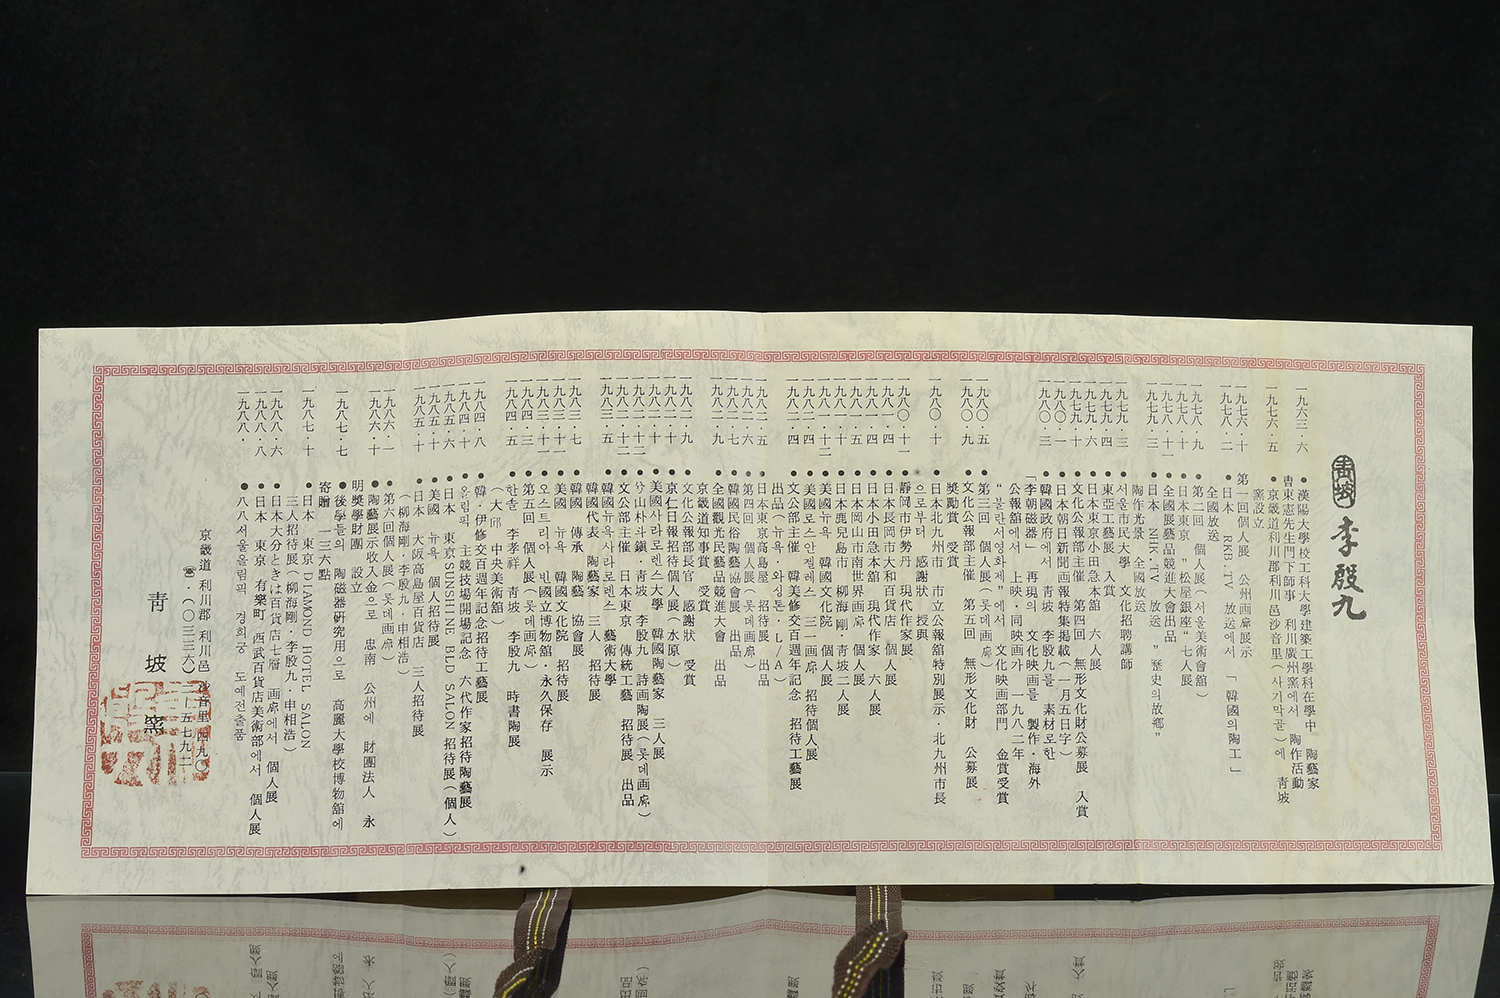 青坡 李殷九
一九六三・六 ●漢陽大學校工科大學建築工學科在學中 陶藝家
靑東憲先生門下師事 利川廣州窯에서 陶作活動
一九七六・五 ●京畿道利川郡利川邑沙音里(사기막골)에 靑坡
窯設立
一九七六・十 第一回個人展 公州画廊展示
一九七八・二 ●日本 RKB.TV 放送에서 「韓國의陶工」
全國放送
一九七八・九 ●第二回 個人展(서울美術會館)
一九七八・十 ●日本東京 "松屋銀座"七人展
一九七八・十一 ●全國民藝品競進大會出品
一九七九・三 ●日本 NHK.TV 放送 "歷史의故鄕"
陶作光景 全國放送
一九七九・三 ●서울市民大學 文化招聘講師
一九七九・四 ●東亞工藝展 入賞
一九七九・六 ●日本東京小田急本舘 六人展
一九七九・十 ●文化公報部主催 第四回 無形文化財公募展 入賞
一九八〇・一 ●日本朝日新聞画報特集揭載(一月五日字)
一九八〇・三 ●韓國政府에서 靑坡 李殷九를 素材로한
「李朝磁器」 再現의 文化映画를 製作・海外
公報舘에서 上映・同映画가 一九八二年
"불란서영화제"에서 文化映画部門 金賞受賞
一九八〇・五 ●第三回 個人展(롯데画廊)
一九八〇・九 ●文化公報部主催 第五回 無形文化財 公募展
奬勵賞 受賞
一九八〇・十 ●日本北九州市 市立公報舘特別展示・北九州市長
으로부터 感謝狀 授與
一九八〇・十一 ●靜岡市伊勢丹 現代作家展
一九八一・四 ●日本長岡市大和百貨店 個人展
一九八一・四 ●日本小田急本舘 現代作家 六人展
一九八一・五 ●日本岡山市南世界画廊 個人展
一九八一・十一 ●日本鹿兒島市 柳海剛・靑坡二人展
一九八一・十二 ●美國뉴욕 韓國文化院 個人展
一九八二・四 ●美國로스안젤레스 三一画廊 招待個人展
一九八二・四 ●文公部主催 韓美修交百週年記念 招待工藝展
出品(뉴욕・와싱톤・L/A)
一九八二・五 ●日本東京高島屋 招待展 出品
一九八二・六 ●第四回 個人展(롯데画廊)
一九八二・七 ●韓國民俗陶藝協會展 出品
一九八二・九 ●全國觀光民藝品競進大會 出品
京畿道知事賞 受賞
一九八二・九 ●文化公報部長官 感謝狀 受賞
一九八二・十 ●京仁日報招待個人展(水原)
一九八二・十一 ●美國사라로렌스大學 韓國陶藝家 三人展
一九八二・十二 ●兮山朴斗鎭・靑坡 李殷九 詩画陶展(롯데画廊)
一九八二・十二 ●文公部主催 日本東京 傳統工藝 招待展 出品
一九八三・五 ●美國뉴욕사라로렌스 藝術大學
韓國代表 陶藝家 三人 招待展
一九八三・七 ●韓國 傳承 陶藝 協會展
一九八三・十 ●美國 뉴욕 韓國文化院 招待展
一九八三・十一 ●오스트리아 빈國立博物舘・永久保存 展示
一九八四・三 ●第五回 個人展(롯데画廊)
一九八四・五 ●한솔 李孝祥 靑坡 李殷九 時書陶展
(大邱 中央美術舘)
一九八四・八 ●韓・伊修交百週年記念招待工藝展
一九八四・十 ●올림픽 主競技場開場記念 六代作家招待陶藝展
一九八五・六 ●日本 東京SUNSHINE BLD SALON 招待展(個人)
一九八五・十 ●美國 뉴욕 個人招待展
一九八五・十 ●日本 大阪高島屋百貨店 三人招待展
(柳海剛・李殷九・申相浩)
一九八六・一 ●第六回個人展(롯데画廊)
一九八六・十 ●陶藝展示收入金으로 忠南 公州에 財團法人 永
明奬學財團 設立
一九八七・七 ●後學들의 陶磁器硏究用으로 高麗大學校博物舘에
寄贈 一三六點
一九八七・十 ●日本 東京 DIAMOND HOTEL SALON
三人招待展(柳海剛・李殷九・申相浩)
一九八八・六 ●日本大分ときは百貨店七層 画廊에서 個人展
一九八八・八 ●日本 東京 有樂町 西武百貨店美術部에서 個人展
一九八八・ ●八八서울올림픽 경희궁 도예전출품
京畿道 利川郡 利川邑 沙音里四九〇
☎・(〇三三六)二-五七九二
靑坡窯